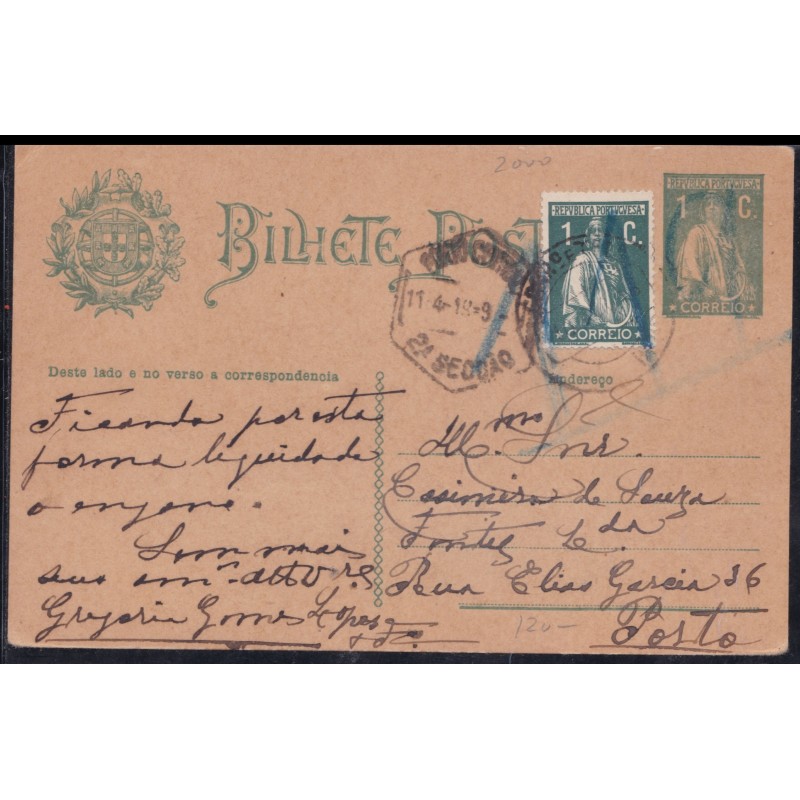 2000
BILHETE POST
REPVBLICA PORTVGVESA
1 C.
CORREIO
REPVBLICA PORTVGVESA
1 C.
CORREIO
11-4-18=9
2A SECÇÃO
Deste lado e no verso a correspondencia
Endereço
Ficando por esta
forma liquidado
o engano.
Sem mais
seus am.os att.os
Gregorio Gomes Lopes
Ill.mo Snr.
Casimiro de Souza
Fontes L.da
Rua Elias Garcia 36
Porto
120-